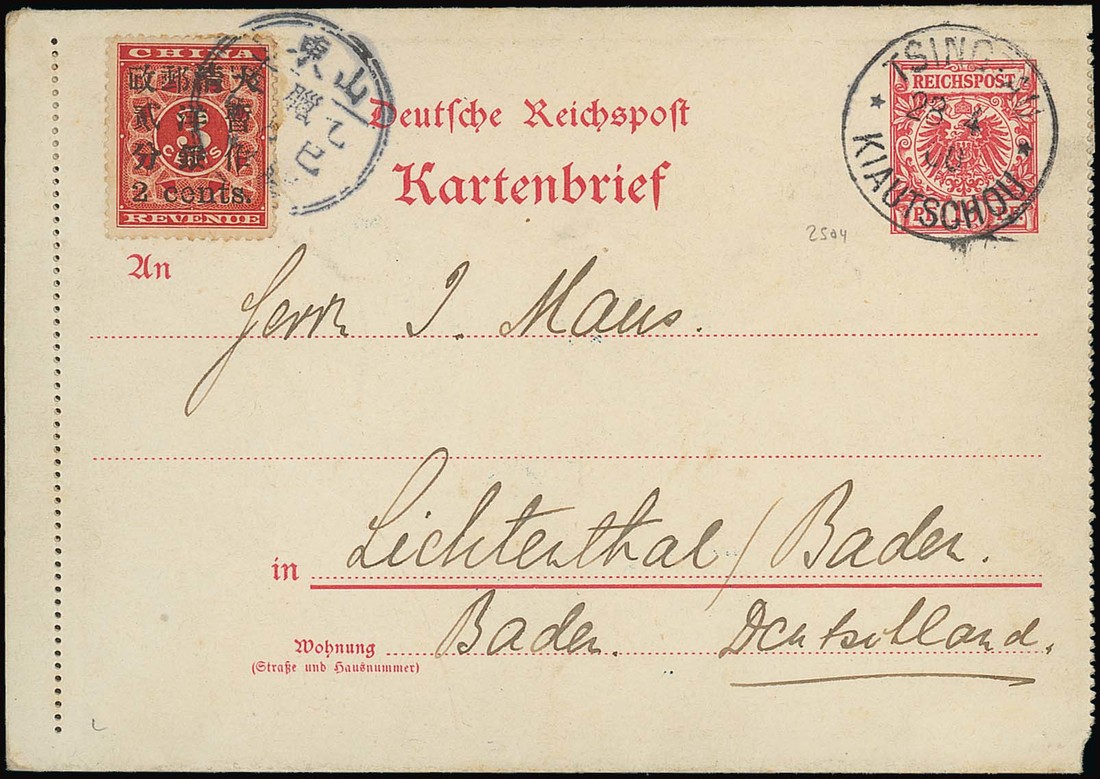 CHINA
大清郵政
暫作洋銀
貳分
3
CENTS
2 cents.
REVENUE
山東
乙巳
臘
Deutsche Reichspost
Kartenbrief
REICHSPOST
TSINGTAU
23 4
KIAUTSCHOU
2504
An
Herrn J. Maus.
in Lichtenthal / Baden.
Wohnung Baden. Deutschland.
(Straße und Hausnummer)
L